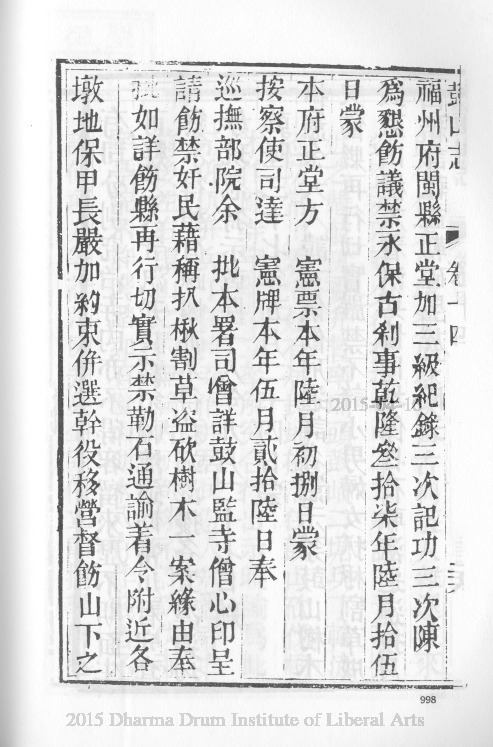 鼓山志 卷十四
福州府閩縣正堂加三級紀錄三次記功三次陳
爲懇飭議禁永保古刹事乾隆叁拾柒年陸月拾伍
日蒙
本府正堂方 憲票本年陸月初捌日蒙
按察使司達 憲牌本年伍月貳拾陸日奉
巡撫部院余 批本署司會詳鼓山監寺僧心印呈
請飭禁奸民藉稱扒楸割草盗砍樹木一案緣由奉
批如詳飭縣再行切實示禁勒石通諭着令附近各
墩地保甲長嚴加約束併選幹役移營督飭山下之
2015
998
2015 Dharma Drum Institute of Liberal Arts